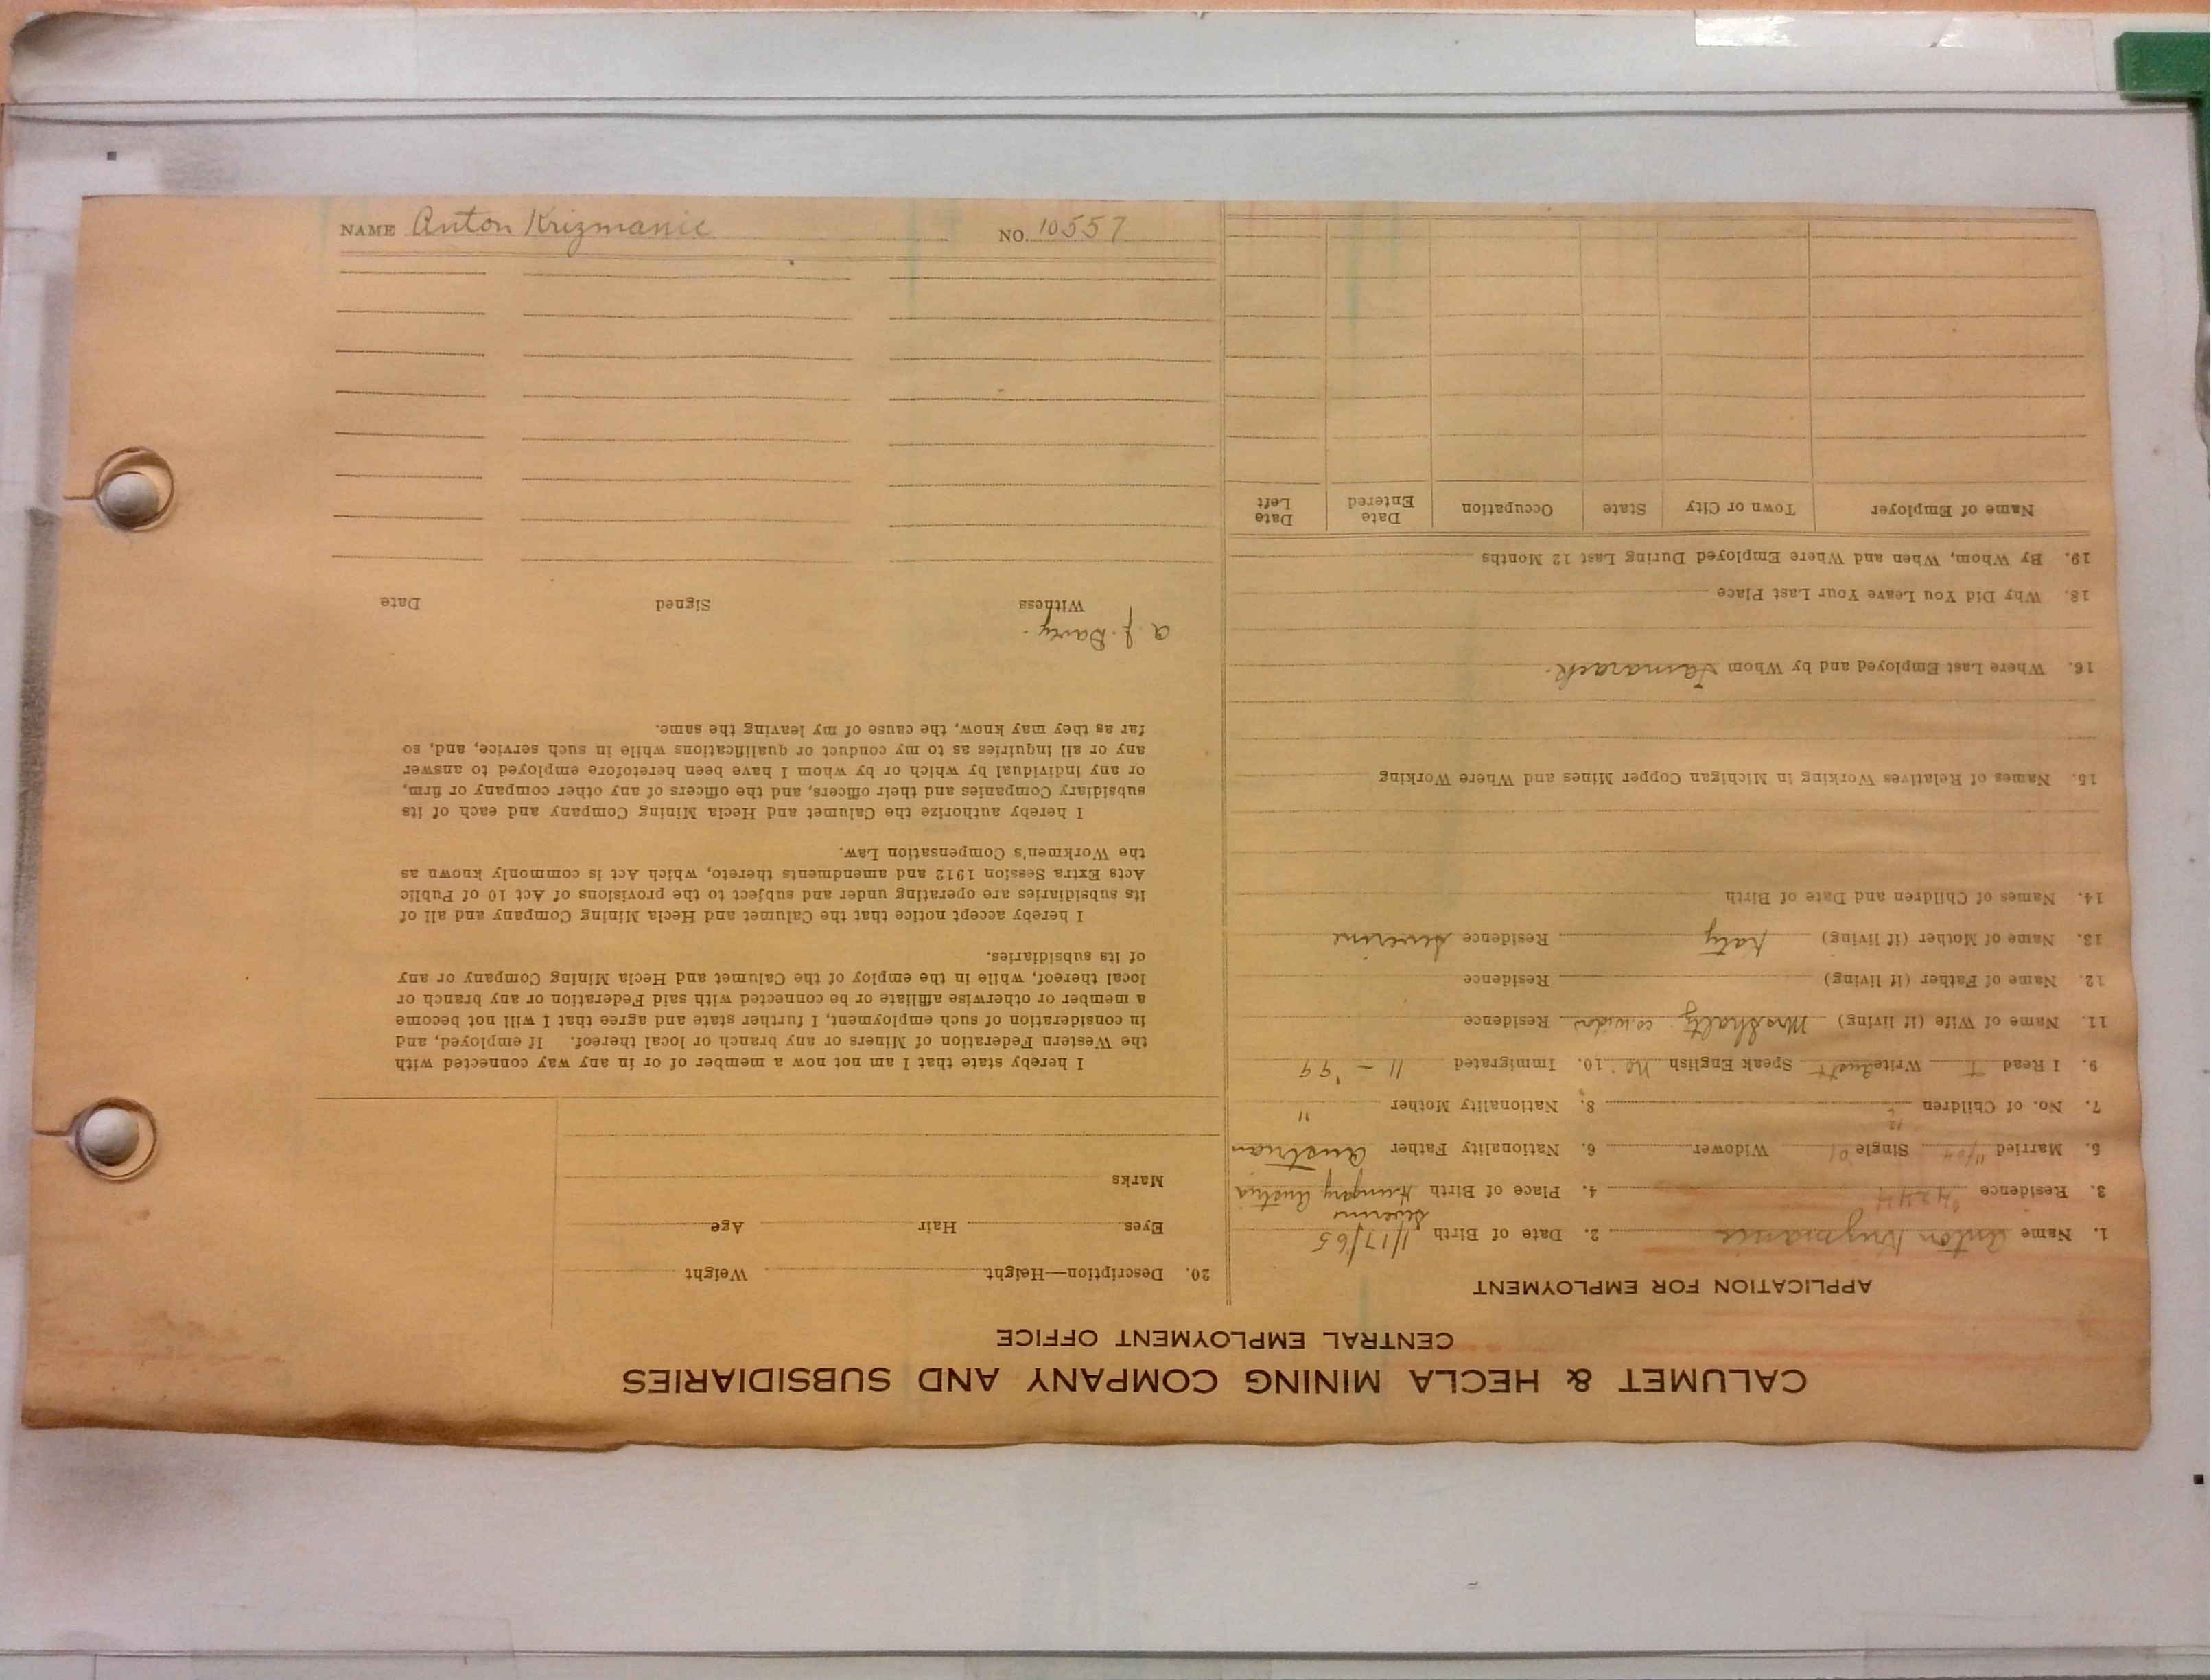 NAME Anton Krizmanic NO. 10557
CALUMET & HECLA MINING COMPANY AND SUBSIDIARIES
CENTRAL EMPLOYMENT OFFICE
APPLICATION FOR EMPLOYMENT
1. Name Anton Krizmanic 2. Date of Birth 1/17/65
Severine
3. Residence 4244 4. Place of Birth Hungary Austria
5. Married Single Widower 6. Nationality Father Austrian
7. No. of Children 8. Nationality Mother "
9. I Read Write Speak English no 10. Immigrated 11 - '99
11. Name of Wife (if living) Mrs Residence
12. Name of Father (if living) Residence
13. Name of Mother (if living) Katy Residence Severine
14. Names of Children and Date of Birth
15. Names of Relatives Working in Michigan Copper Mines and Where Working
16. Where Last Employed and by Whom Tamarack
18. Why Did You Leave Your Last Place
19. By Whom, When and Where Employed During Last 12 Months
Name of Employer Town or City State Occupation Date Entered Date Left
20. Description—Height Weight
Eyes Hair Age
Marks
I hereby state that I am not now a member of or in any way connected with
the Western Federation of Miners or any branch or local thereof. If employed, and
in consideration of such employment, I further state and agree that I will not become
a member or otherwise affiliate or be connected with said Federation or any branch or
local thereof, while in the employ of the Calumet and Hecla Mining Company or any
of its subsidiaries.
I hereby accept notice that the Calumet and Hecla Mining Company and all of
its subsidiaries are operating under and subject to the provisions of Act 10 of Public
Acts Extra Session 1912 and amendments thereto, which Act is commonly known as
the Workmen's Compensation Law.
I hereby authorize the Calumet and Hecla Mining Company and each of its
subsidiary Companies and their officers, and the officers of any other company or firm,
or any individual by which or by whom I have been heretofore employed to answer
any or all inquiries as to my conduct or qualifications while in such service, and, so
far as they may know, the cause of my leaving the same.
a. J. Davey.
Witness Signed Date